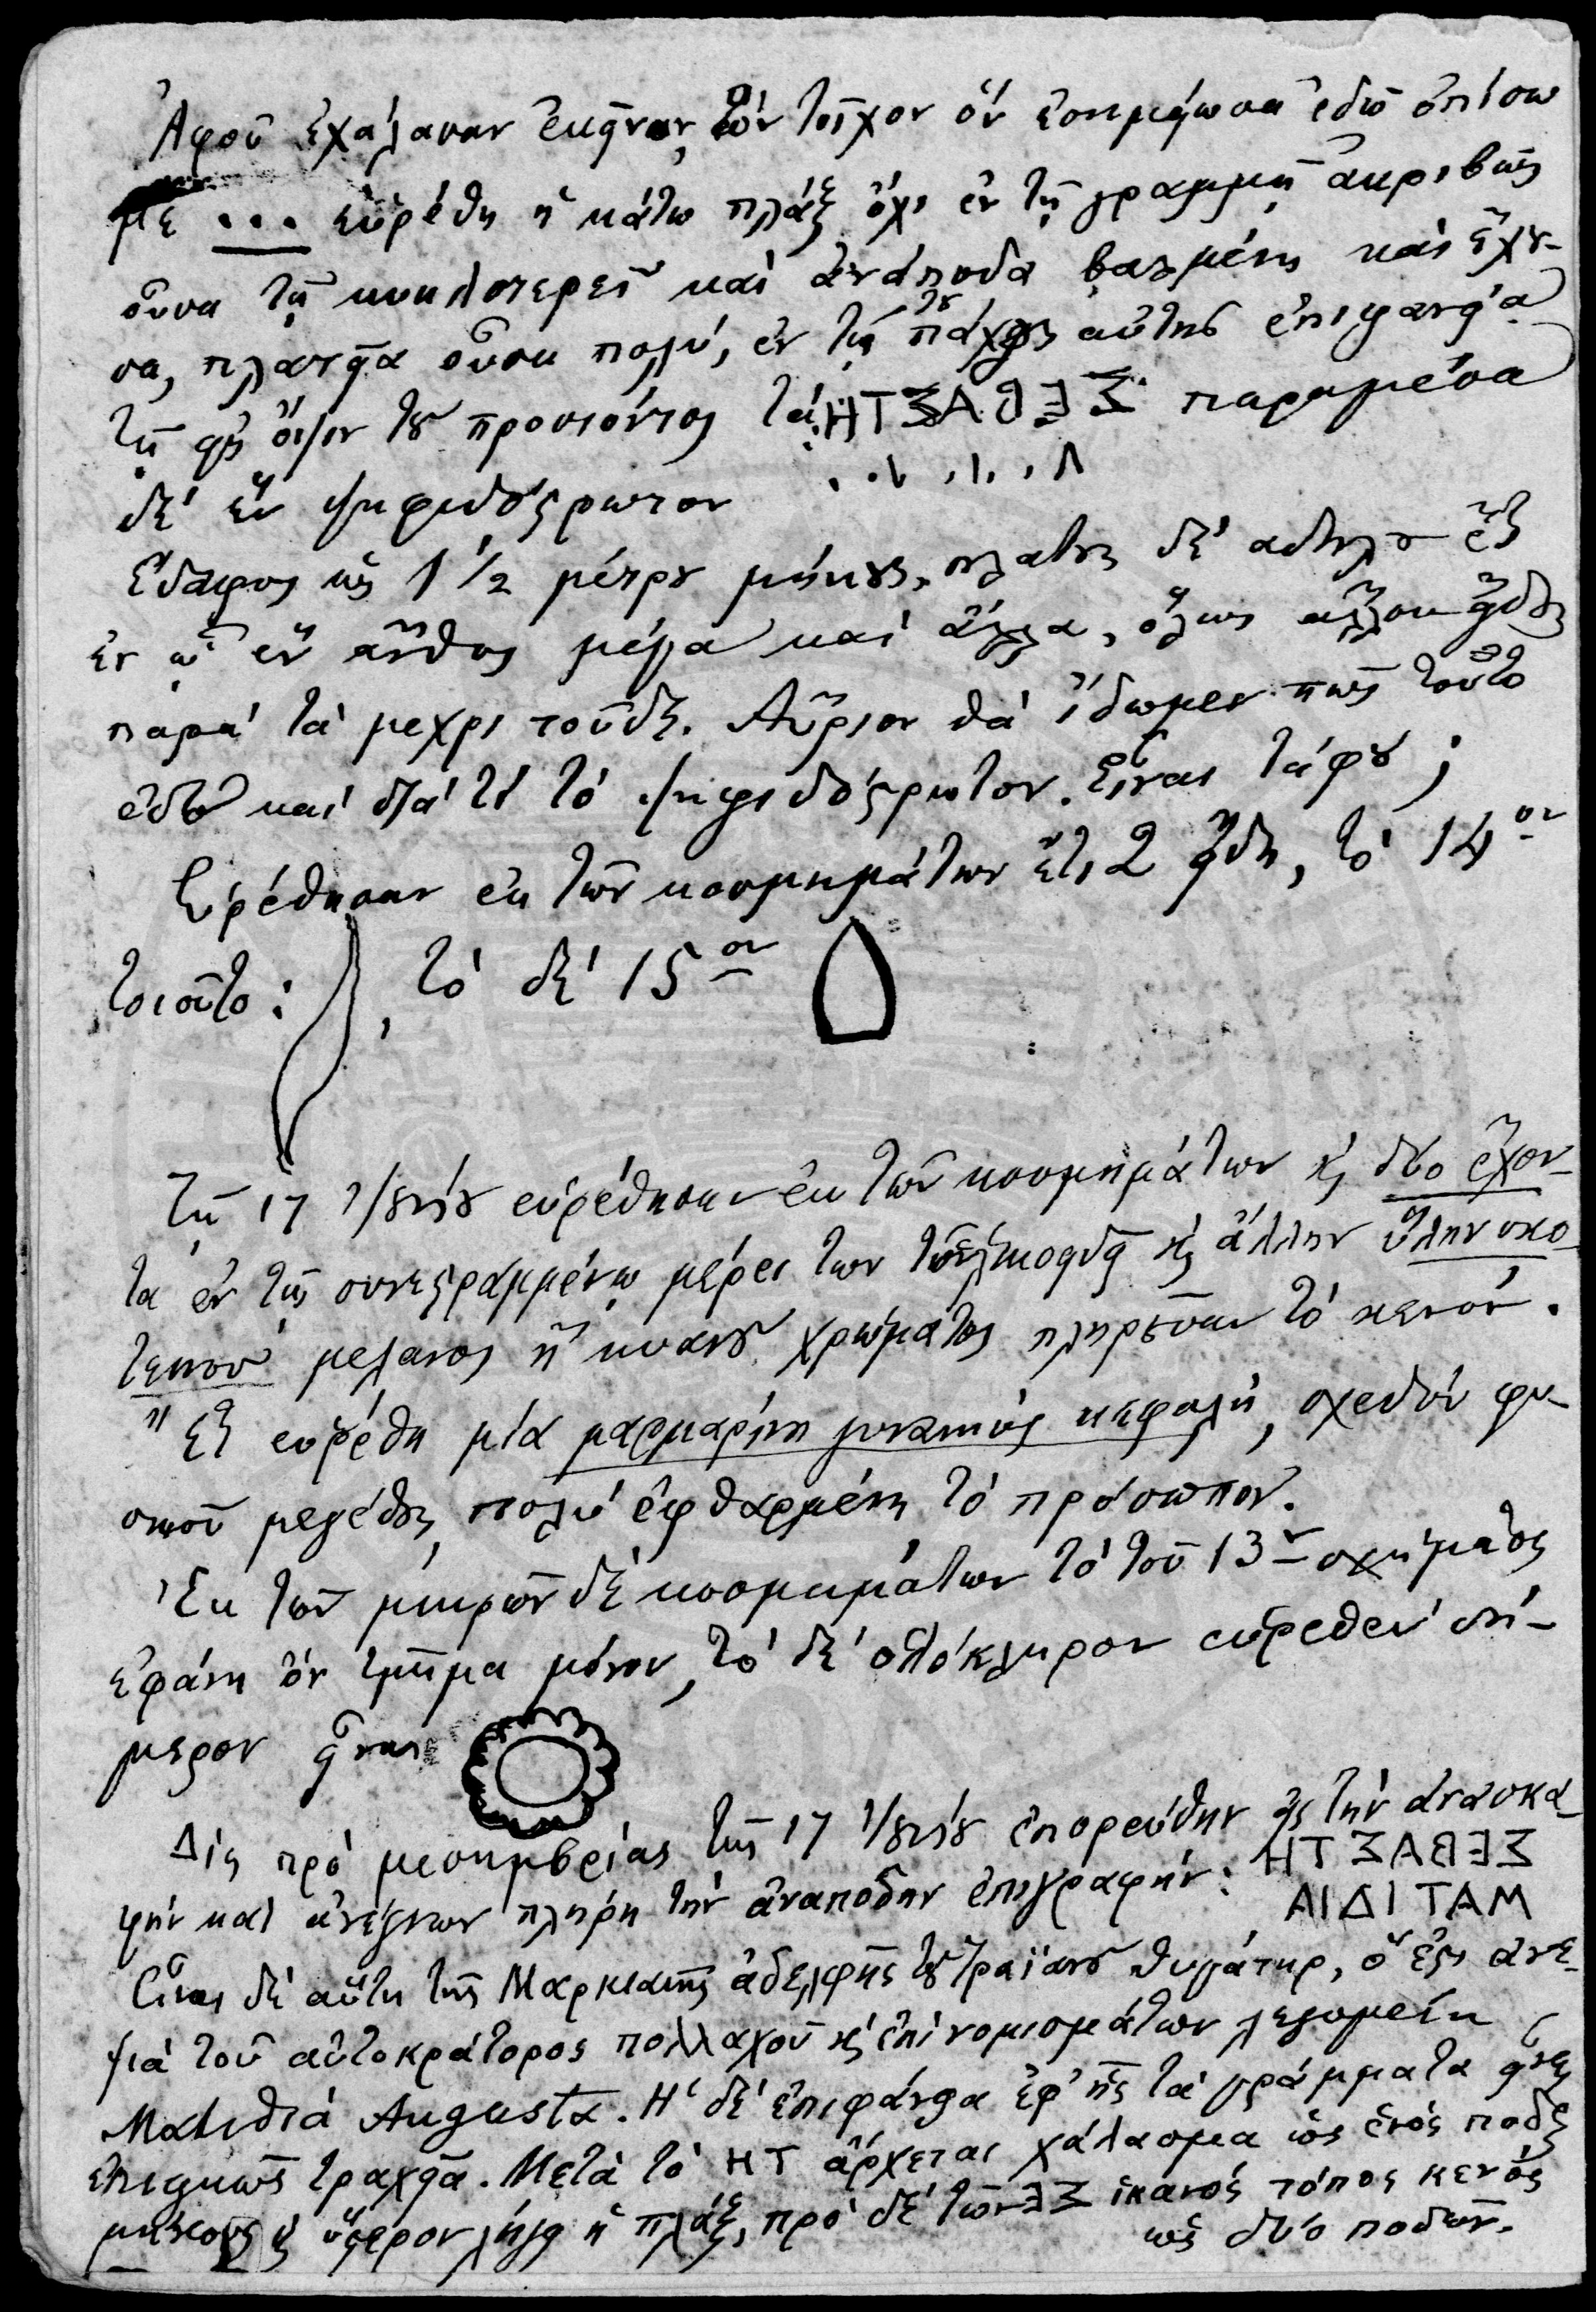 Ἀφοῦ ἐχάλασαν ἐκεῖνον τὸν τοῖχον ὃν ἐσημείωσα ἐδῶ ὀπίσω
με ... εὑρέθη ἡ κάτω πλὰξ ὄχι ἐν τῇ γραμμῇ ἀκριβῶς
οὖσα τῇ κυκλοτερεῖ καὶ ἀνάποδα βαλμένη καὶ ἔχου-
σα, πλατεῖα οὖσα πολύ, ἐν τῇ τοῦ πάχους αὐτῆς ἐπιφανείᾳ
τῇ ὄψιν τοῦ προσιόντος τά: ΗΤΣΑΒΕΣ παραμέσα
δὲ ἓν ψηφιδόστρωτον
ἔδαφος ὡς 1 1/2 μέτρου μήκους, πλάτους δὲ ἀδήλου ἔτι
ἐν ᾧ ἓν ἄνθος μέγα καὶ ἄλλα, ὅλως ἄλλου εἴδους
παρὰ τὰ μέχρι τοῦδε. Αὔριον θὰ ἴδωμεν πῶς τοῦτο
ἐδῶ καὶ διὰ τί τὸ ψηφιδόστρωτον. Εἶναι τάφου;
Εὑρέθησαν ἐκ τῶν κοσμημάτων ἔτι 2 εἴδη, τὸ 14ον
τοιοῦτο: , τὸ δὲ 15ον
Τῇ 17 εὑρέθησαν ἐκ τῶν κοσμημάτων κ δύο ἔχον-
τα ἐν τῷ συνεστραμμένῳ μέρει των κ ἄλλην ὕλην σκο-
τεινοῦ μέλανος ἢ κυανοῦ χρώματος πληροῦσαν τὸ κενόν.
εὑρέθη μία μαρμαρίνη γυναικὸς κεφαλή, σχεδὸν φυ-
σικοῦ μεγέθους, πολὺ ἐφθαρμένη τὸ πρόσωπον.
Ἐκ τῶν μικρῶν δὲ κοσμημάτων τὸ τοῦ 13ου σχήματος
ἐφάνη ὂν τμῆμα μόνον, τὸ δὲ ὁλόκληρον εὑρεθὲν σή-
μερον εἶναι
Δὶς πρὸ μεσημβρίας τῆς 17 ἐπορεύθην εἰς τὴν ἀνασκα-
φὴν καὶ ἀνέγνων πλήρη τὴν ἀνάποδην ἐπιγραφήν: ΗΤΣΑΒΕΣ
ΑΙΔΙΤΑΜ
Εἶναι δὲ αὕτη τῆς Μαρκιανῆς ἀδελφῆς τοῦ Τραϊανοῦ θυγάτηρ, ὅ ἐστι ἀνε-
ψιὰ τοῦ αὐτοκράτορος πολλαχοῦ κ ἐπὶ νομισμάτων λεγομένη
Matidia Augusta. Ἡ δὲ ἐπιφάνεια ἐφ' ἧς τὰ γράμματα εἶναι
ἐπιεικῶς τραχεῖα. Μετὰ τὸ ΗΤ ἄρχεται χάλασμα ὡς ἑνὸς ποδὸς
μήκους κ ὕστερον λήγει ἡ πλάξ, πρὸ δὲ τῶν ΕΣ ἱκανὸς τόπος κενὸς
ὡς δύο ποδῶν.